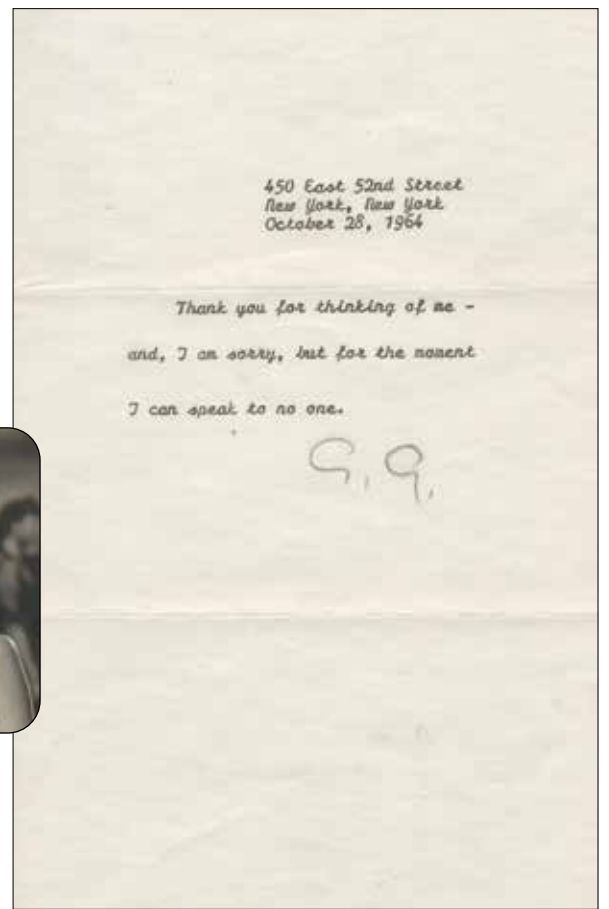 450 East 52nd Street
New York, New York
October 28, 1964
Thank you for thinking of me -
and, I am sorry, but for the moment
I can speak to no one.
G. G.